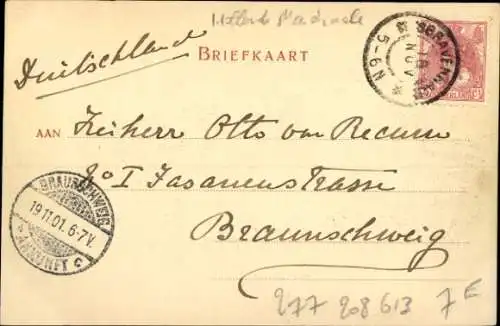 Deutschland
BRIEFKAART
'S GRAVENHAGE
18 NOV
5-6 N
AAN Freiherr Otto van Recum
No I Fasanenstrasse
Braunschweig
BRAUNSCHWEIG
19.11.01.6-7V.
* ANKUNFT C
277 208 613 7€